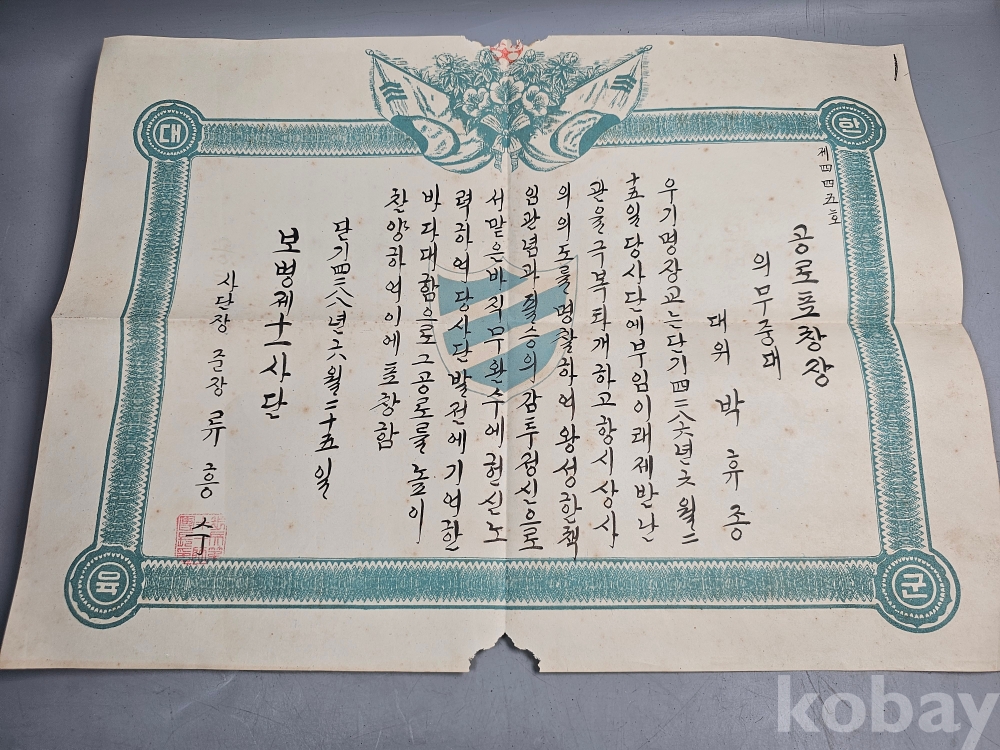 한
대
육
군
제四四五호
공로표창장
의무중대
대위 박 휴 종
우기명장교는단기四二八六년六월二
十五일당사단에부임이래제반난
관을극복타개하고항시상사
의의도를명찰하여왕성한책
임관념과필승의감투정신으로
서맡은바직무완수에헌신노
력하여당사단발전에기여한
바다대함으로그공로를높이
찬양하여이에표창함
단기四二八八년六월二十五일
보병제十一사단
사단장 준장 류 흥 수
kobay